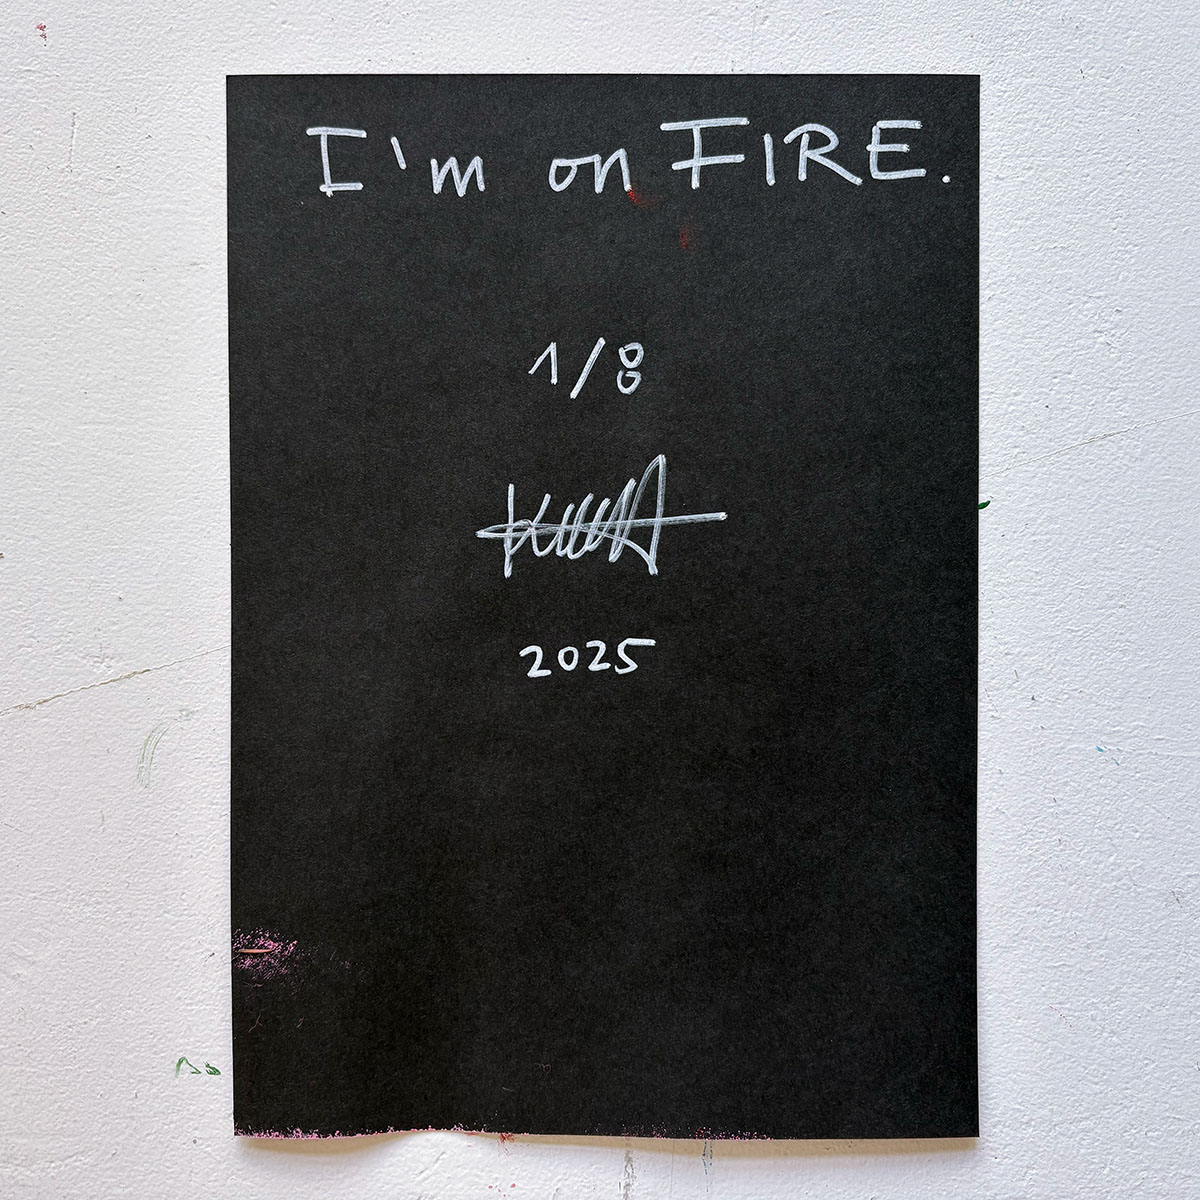 I'm on FIRE.
1/8
2025